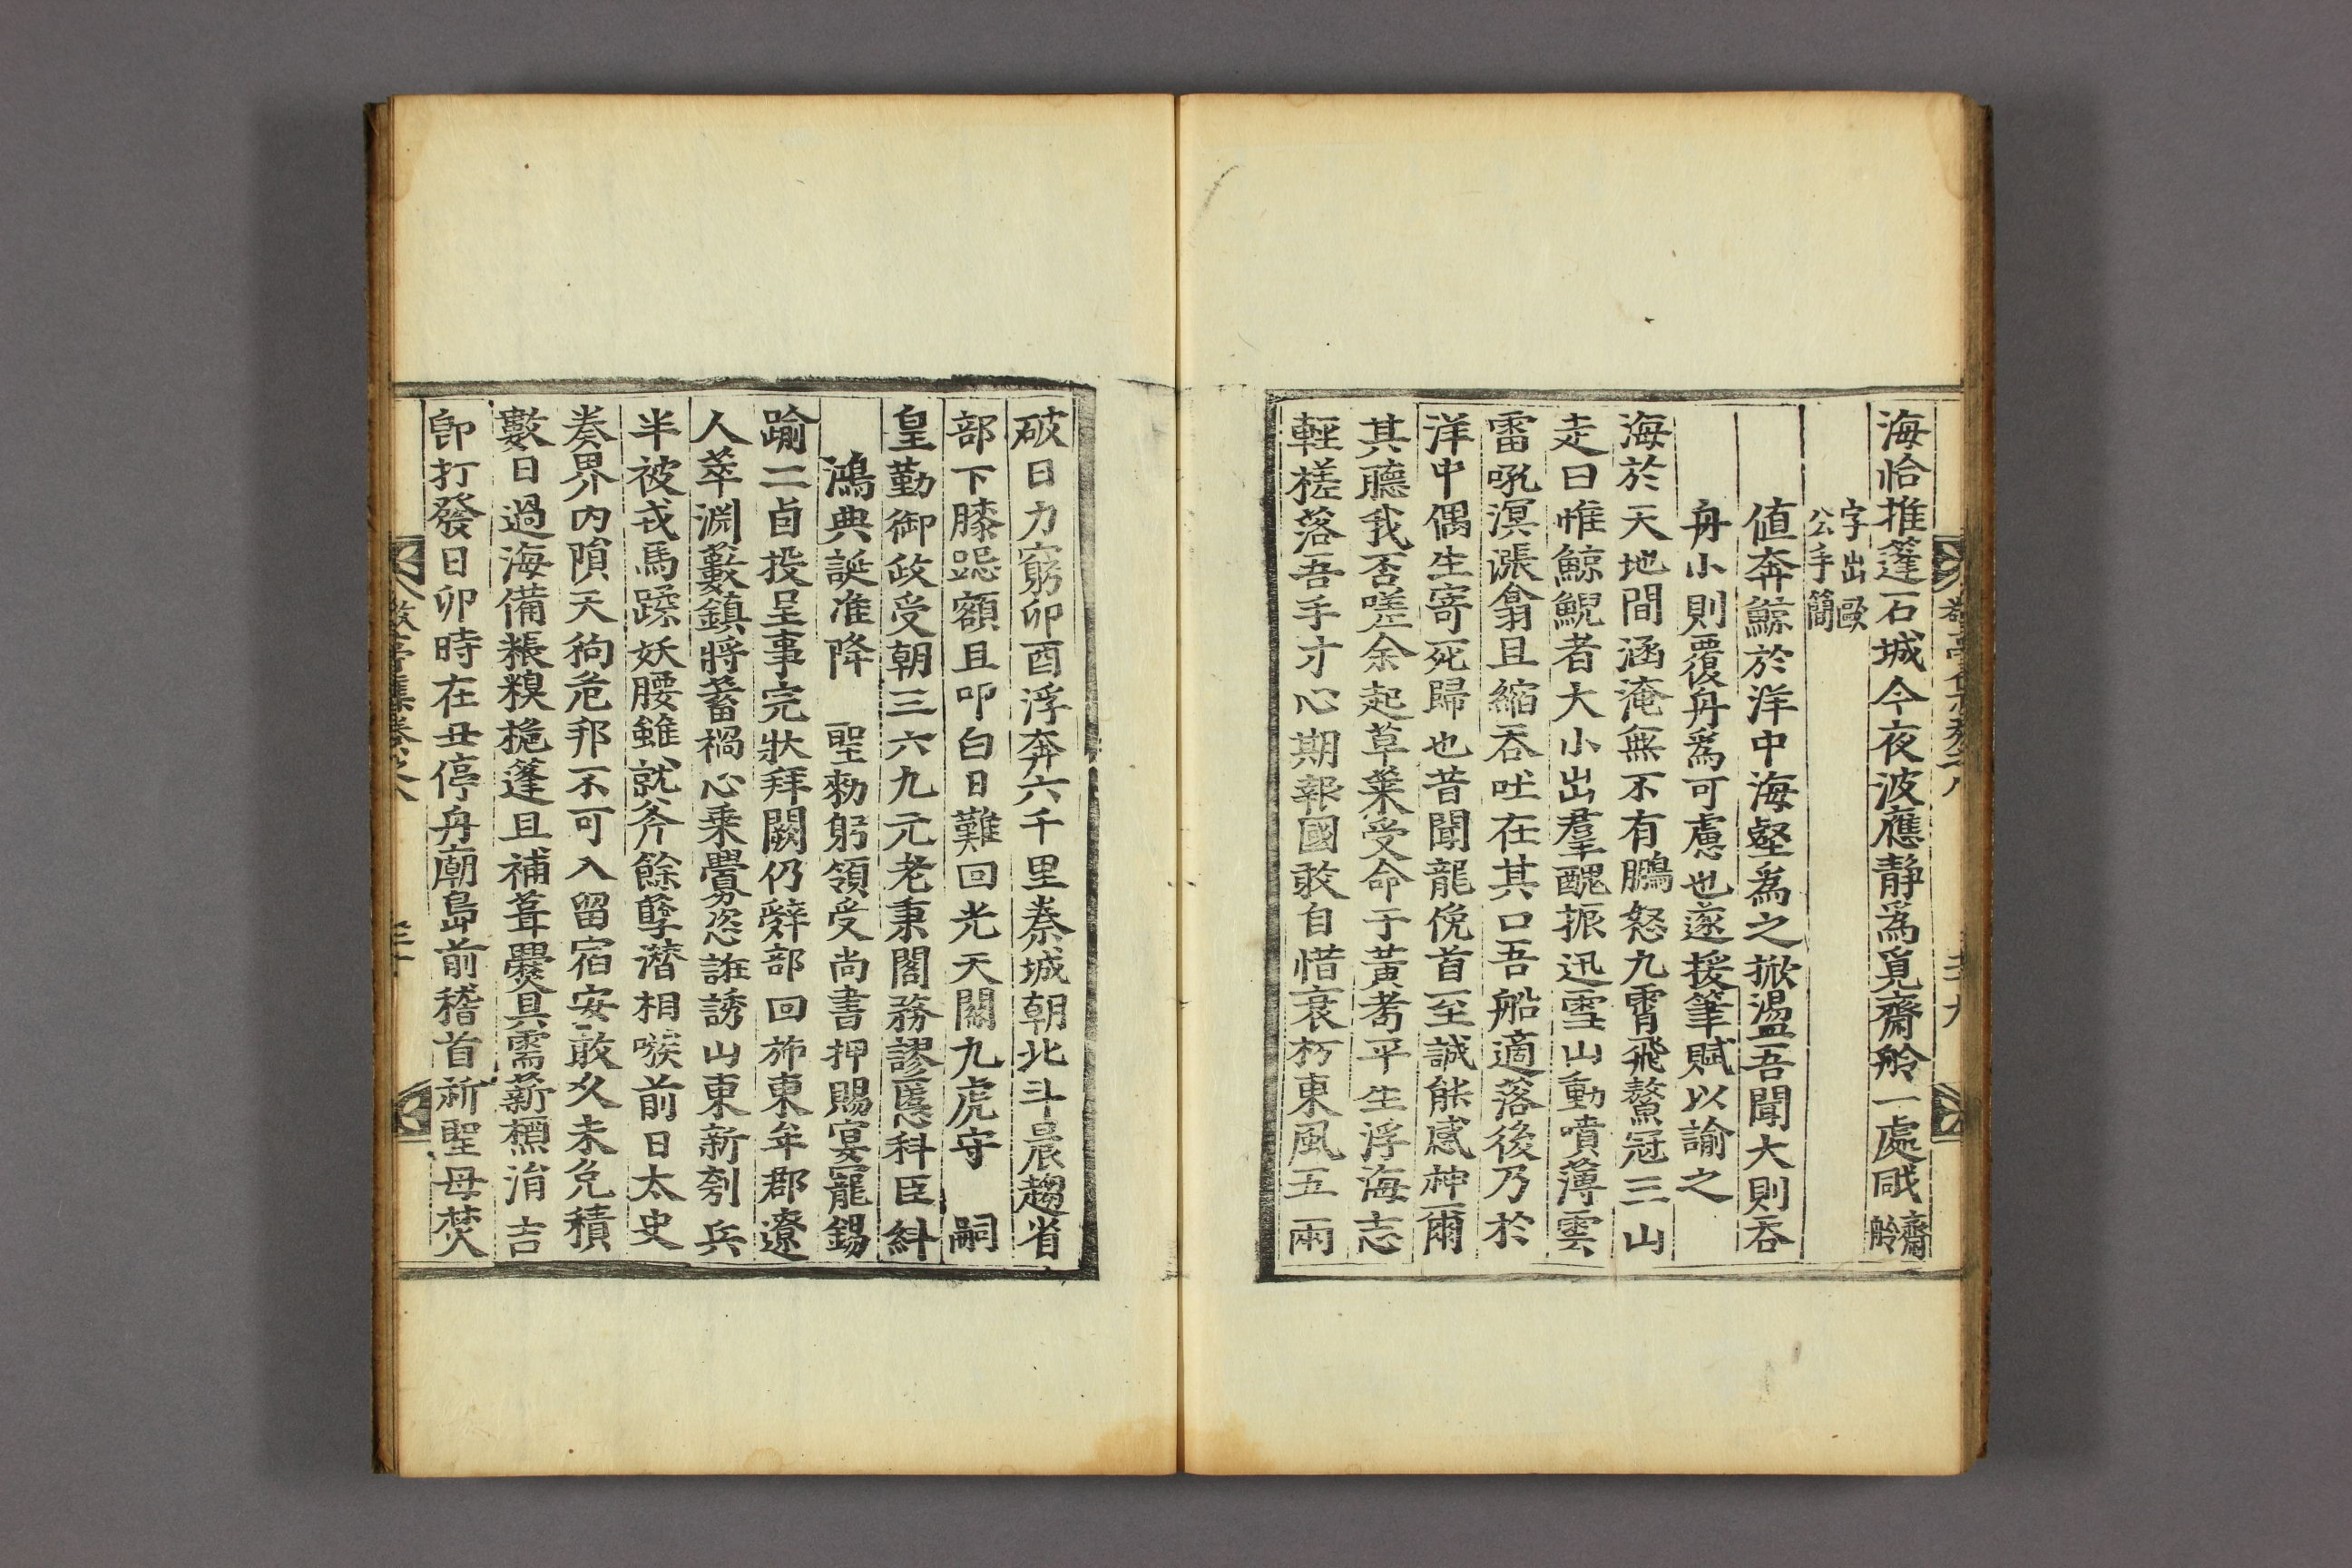 海恰推篷石城今夜波應靜爲覓齋舲一處咸齋舲
字出歐
公手簡
値奔鯨於洋中海壑爲之掀盪吾聞大則吞
舟小則覆舟爲可慮也遂援筆賦以諭之
海於天地間涵淹無不有鵬怒九霄飛鰲冠三山
走曰惟鯨鯢者大小出羣醜振迅雪山動噴薄雲
雷吼溟漲翕且縮吞吐在其口吾船適落後乃於
洋中偶生寄死歸也昔聞龍俛首至誠能感神爾
其聽我否嗟余起草萊受命于黃耇平生浮海志
輕槎落吾手寸心期報國敢自惜衰朽東風五兩
破日力窮卯酉浮奔六千里秦城朝北斗晨趨省
部下膝跽額且叩白日難回光天關九虎守 嗣
皇勤御政受朝三六九元老秉閣務謬慝科臣糾
鴻典誕准降 聖勅躬領受尚書押賜宴寵錫
踰二卣投呈事完狀拜闕仍辭部回斾東牟郡遼
人萃淵藪鎮將蓄禍心乘釁恣誑誘山東新刳兵
半被戎馬蹂妖腰雖就斧餘孽潛相嗾前日太史
奏界內隕天狗危邦不可入留宿安敢久未免積
數日過海備粻糗桅篷且補葺爨具需薪槱涓吉
卽打發日卯時在丑停舟廟島前稽首祈聖母焚
敬亭集卷之八
三十